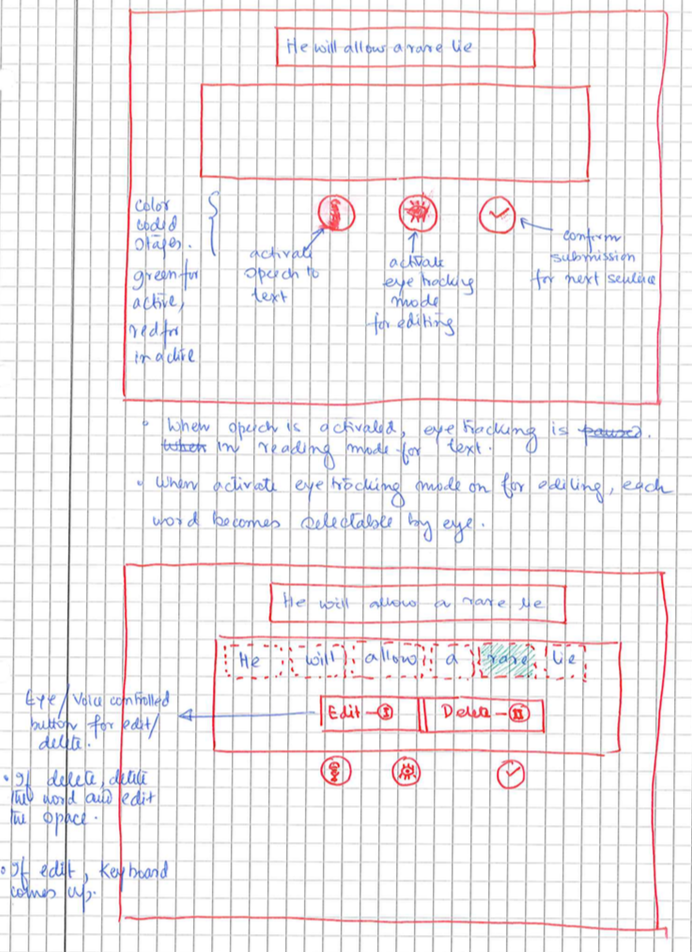 He will allow a rare lie
color
coded
stages.
green for
active,
red for
inactive
activate
speech to
text
activate
eye tracking
mode
for editing
confirm
submission
for next sentence
• When speech is activated, eye tracking is paused.
When in reading mode for text.
• When activate eye tracking mode on for editing, each
word becomes selectable by eye.
He will allow a rare lie
He will allow a rare lie
Edit - I Delete - II
Eye/Voice controlled
button for edit/
delete.
• If delete, delete
the word and edit
the space.
• If edit, keyboard
comes up.